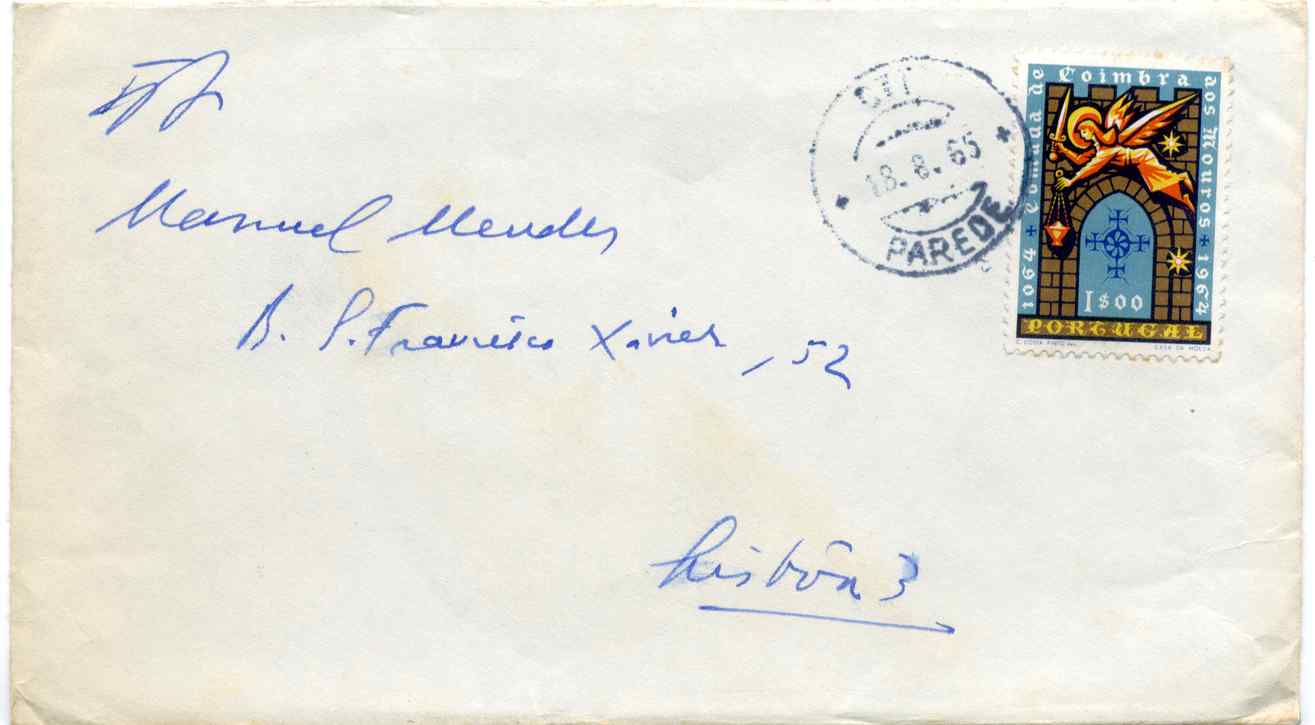 Manuel Mendes
R. S. Francisco Xavier, 52
Lisbôa 3
CTT
18.8.65
PAREDE
1064 + Tomada de Coimbra aos Mouros + 1964
1$00
PORTUGAL
CASA DA MOEDA